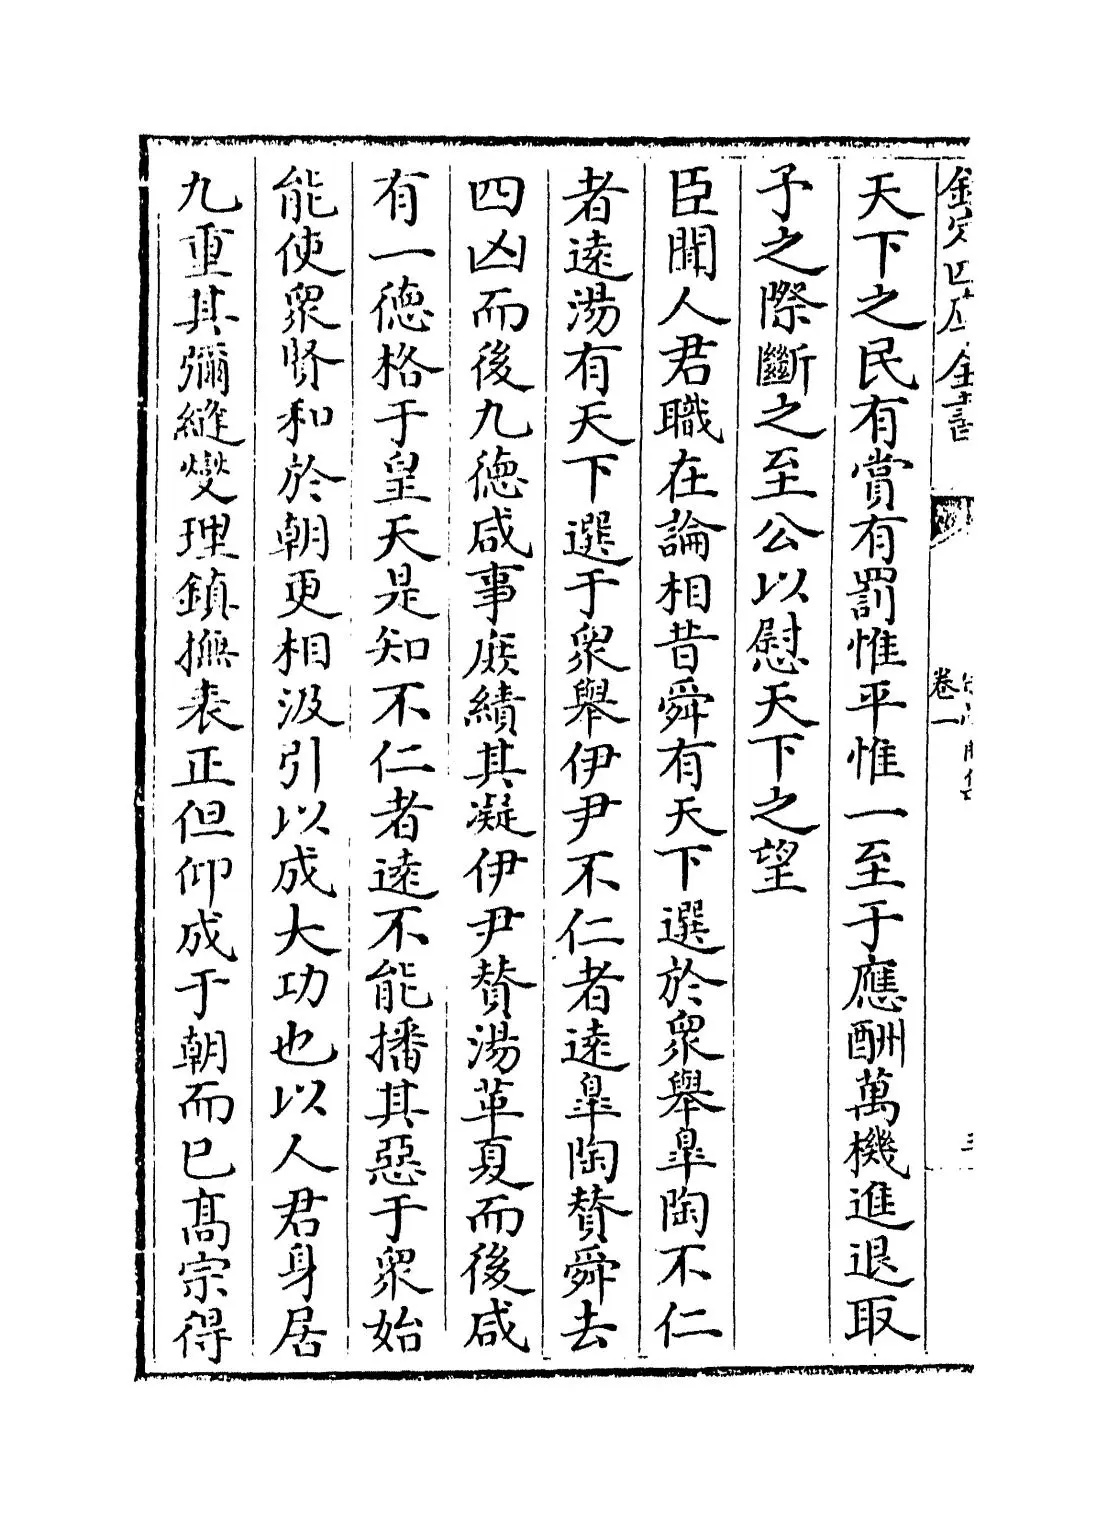 欽定四庫全書
卷一
天下之民有賞有罰惟平惟一至于應酬萬機進退取
予之際斷之至公以慰天下之望
臣聞人君職在論相昔舜有天下選於衆舉臯陶不仁
者遠湯有天下選于衆舉伊尹不仁者遠臯陶賛舜去
四凶而後九德咸事庶績其凝伊尹賛湯革夏而後咸
有一德格于皇天是知不仁者遠不能播其惡于衆始
能使衆賢和於朝更相汲引以成大功也以人君身居
九重其彌縫燮理鎮撫表正但仰成于朝而已髙宗得